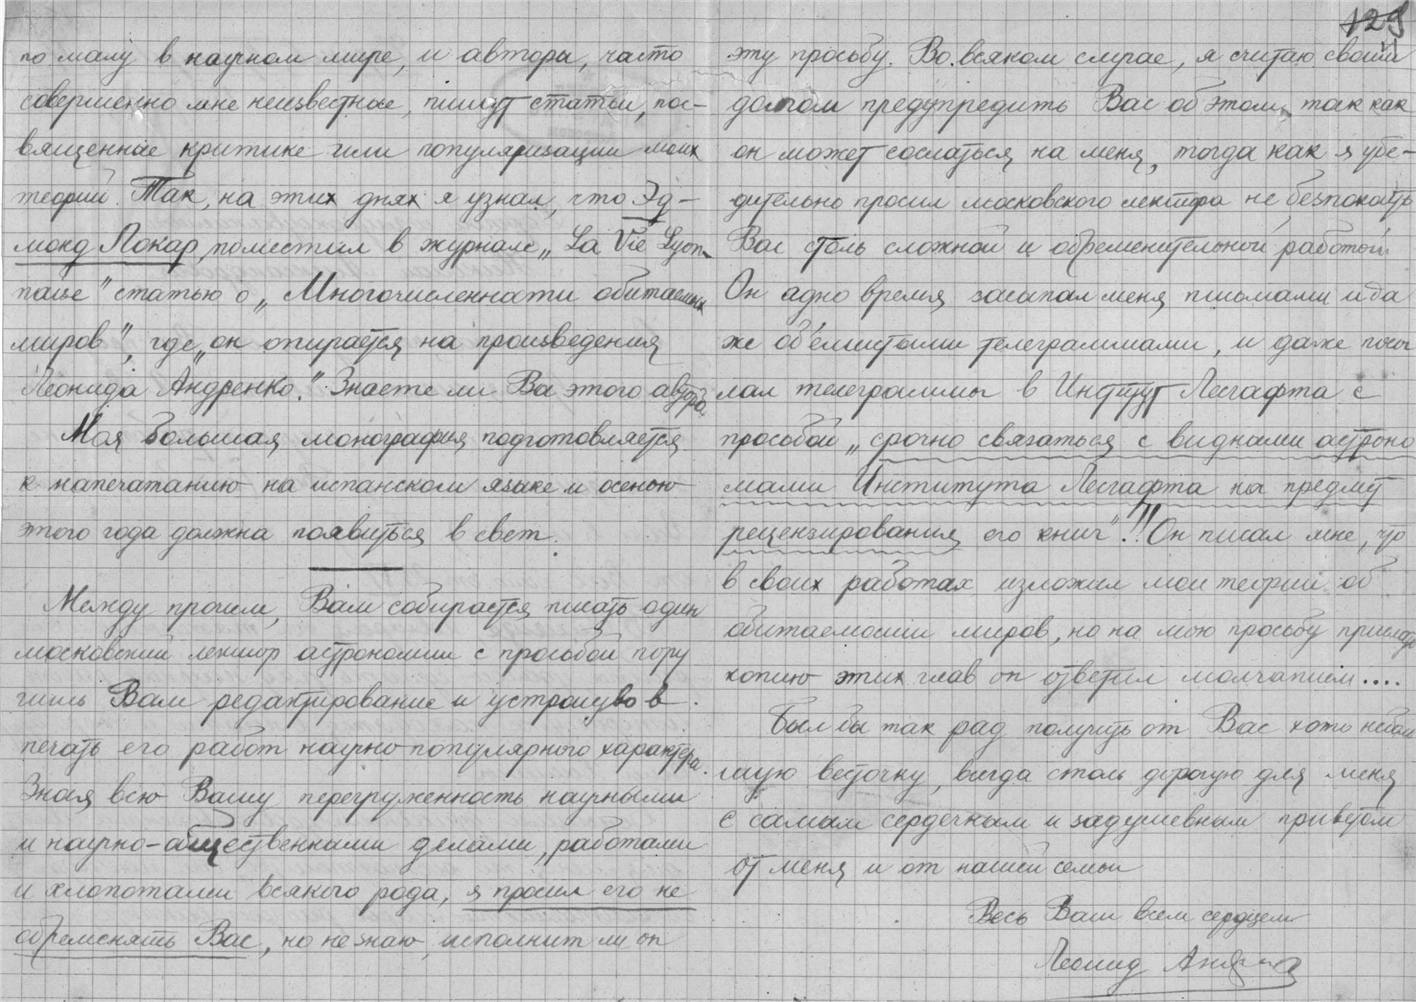 129
по малу в научном мире, и авторы, часто
совершенно мне неизвестные, пишут статьи, пос-
вященные критике или популяризации моих
теорий. Так, на этих днях я узнал, что Эд-
монд Локар поместил в журнале „La Vie Lyon-
naise" статью о „Многочисленности обитаемых
миров", где „он опирается на произведения
Леонида Андренко." Знаете ли Вы этого автора.
Моя большая монография подготовляется
к напечатанию на испанском языке и осенью
этого года должна появиться в свет.
Между прочим, Вам собирается писать один
московский лектор астрономии с просьбой пору
чить Вам редактирование и устройство в
печать его работ научно популярного характера.
Зная всю Вашу перегруженность научными
и научно-общественными делами, работами
и хлопотами всякого рода, я просил его не
обременять Вас, но не знаю, исполнит ли он
эту просьбу. Во всяком случае, я считаю своим
долгом предупредить Вас об этом, так как
он может сослаться на меня, тогда как я убе-
дительно просил московского лектора не безпокоить
Вас столь сложной и обременительной работой.
Он одно время засыпал меня письмами и да
же об'емистыми телеграммами, и даже посы
лал телеграммы в Институт Лесгафта с
просьбой „срочно связаться с видными астроно
мами Института Лесгафта на предмет
рецензирования его книг"!!! Он писал мне, что
в своих работах изложил мои теории об
обитаемости миров, но на мою просьбу прислать
копию этих глав он ответил молчанием....
Был бы так рад получить от Вас хоть неболь
шую весточку, всегда столь дорогую для меня
С самым сердечным и задушевным приветом
от меня и от нашей семьи
Весь Ваш всем сердцем
Леонид Андренко